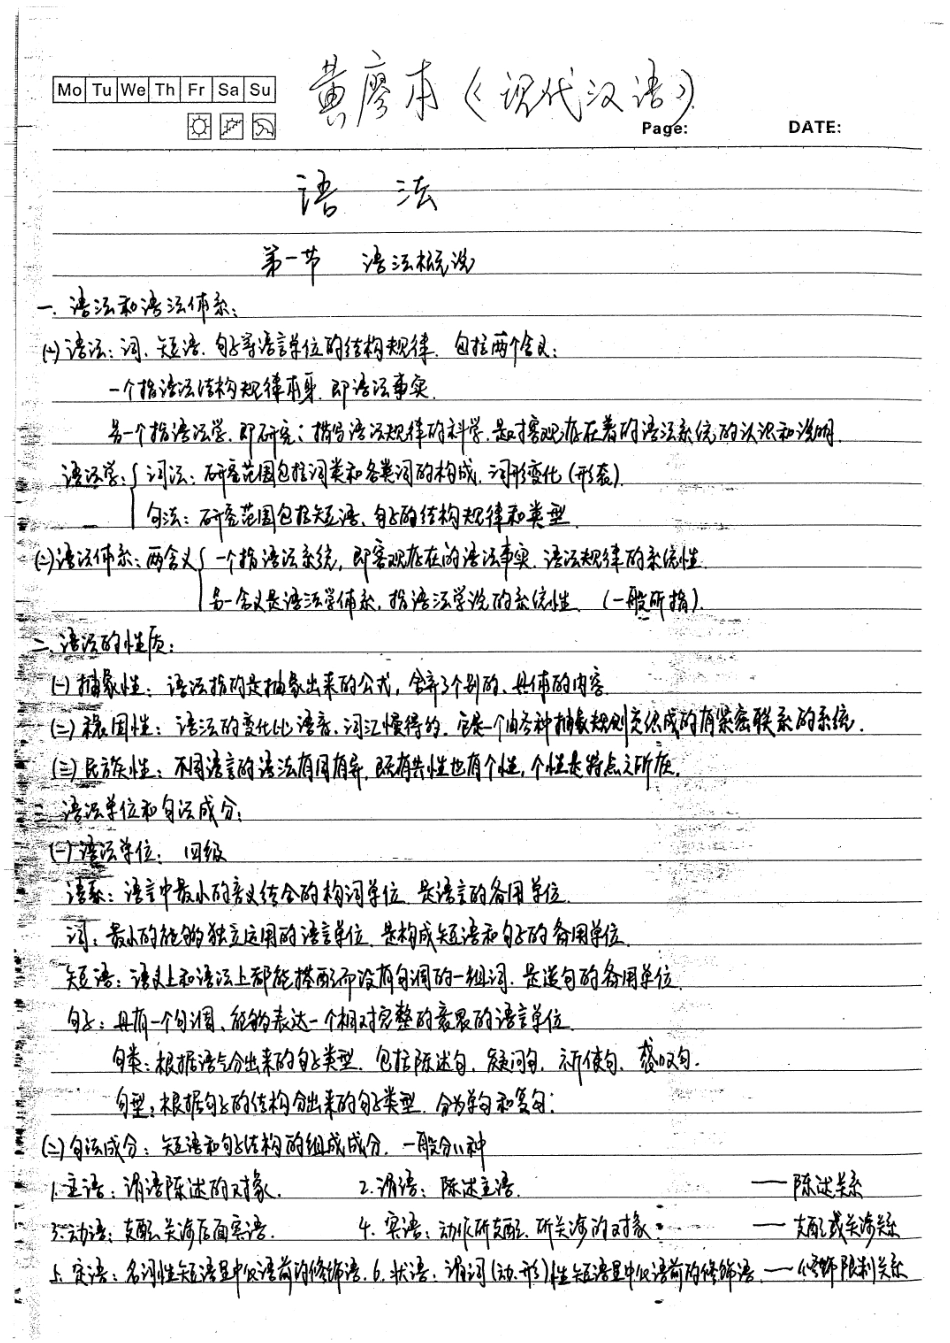 黄廖本《现代汉语》
Mo Tu We Th Fr Sa Su
Page: DATE:
语 法
第一节 语法概说
一. 语法和语法体系:
(一)语法: 词、短语、句子等语言单位的结构规律. 包括两个含义:
一个指语法结构规律本身. 即语法事实.
另一个指语法学. 即研究、描写语法规律的科学. 是对客观存在着的语法系统的认识和说明.
语法学: 词法: 研究范围包括词类和各类词的构成、词形变化(形态).
句法: 研究范围包括短语、句子的结构规律和类型.
(二)语法体系: 两含义 一个指语法系统, 即客观存在的语法事实、语法规律的系统性.
另一含义是语法学体系, 指语法学说的系统性. (一般所指).
二. 语法的性质:
(一)抽象性: 语法指的是抽象出来的公式, 舍弃了个别的、具体的内容.
(二)稳固性: 语法的变化比语音、词汇慢得的. 它是一个由各种抽象规则交织成的有紧密联系的系统.
(三)民族性: 不同语言的语法有同有异, 既有共性也有个性, 个性是特点之所在.
三. 语法单位和句法成分:
(一)语法单位: 四级
语素: 语言中最小的音义结合的构词单位. 是语言的备用单位.
词: 最小的能够独立运用的语言单位. 是构成短语和句子的备用单位.
短语: 语义上和语法上都能搭配而没有句调的一组词. 是造句的备用单位.
句子: 具有一个句调、能够表达一个相对完整的意思的语言单位.
句类: 根据语气分出来的句子类型. 包括陈述句、疑问句、祈使句、感叹句.
句型: 根据句子的结构分出来的句子类型. 分为单句和复句:
(二)句法成分: 短语和句子结构的组成成分. 一般分八种
1. 主语: 谓语陈述的对象. 2. 谓语: 陈述主语. —— 陈述关系
3. 动语: 支配、关涉后面宾语. 4. 宾语: 动作所支配、所关涉的对象. —— 支配或关涉关系
5. 定语: 名词性短语里中心语前的修饰语. 6. 状语: 谓词(动、形)性短语里中心语前的修饰语. —— 修饰限制关系